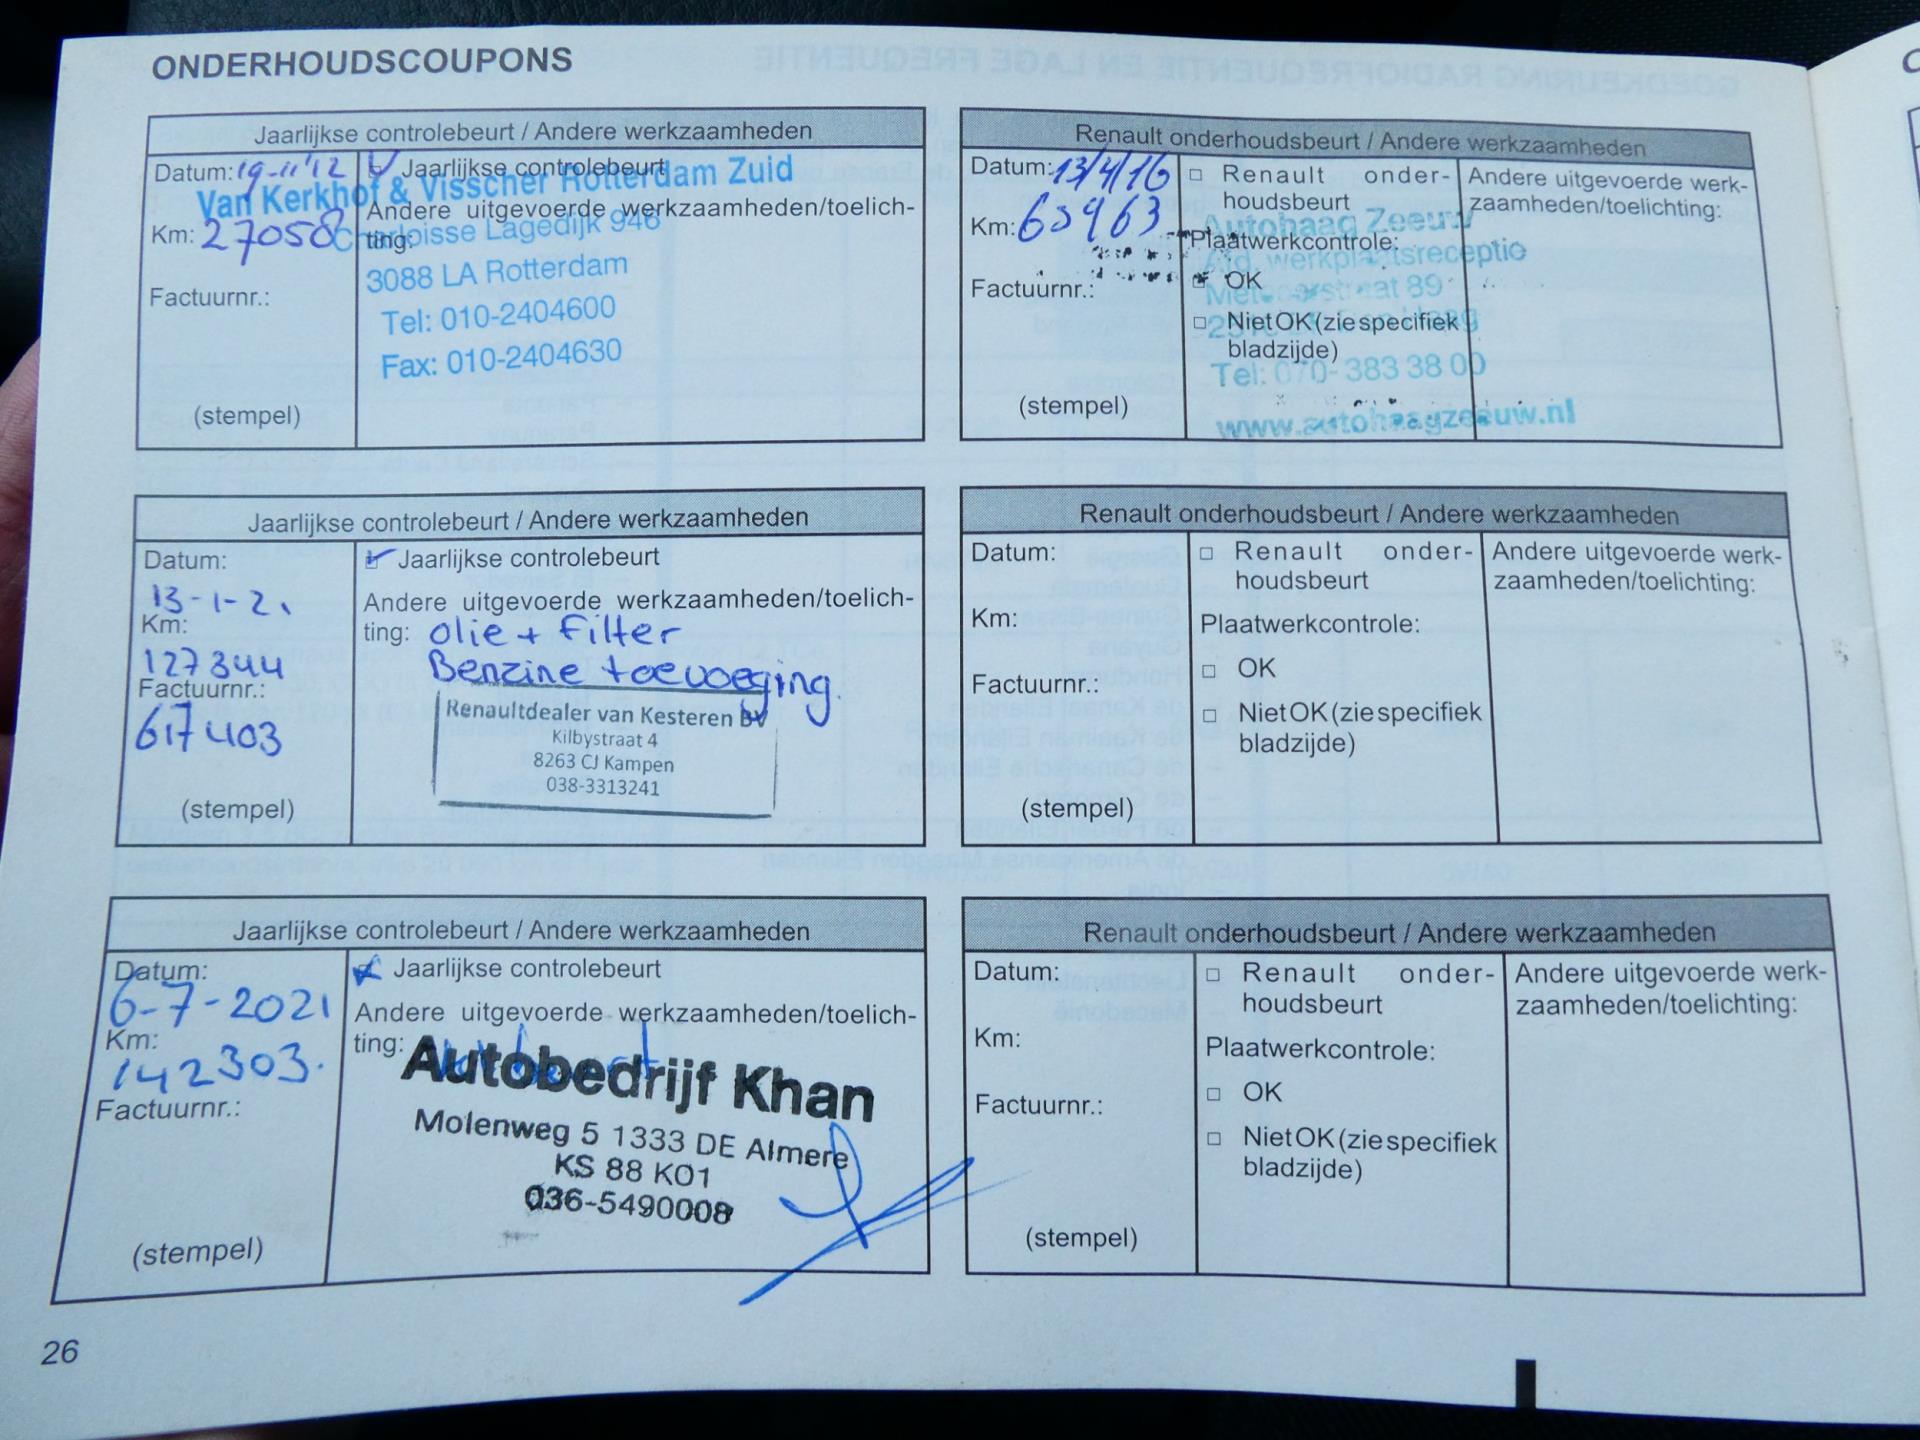 ONDERHOUDSCOUPONS
Jaarlijkse controlebeurt / Andere werkzaamheden
Datum: 19-11'12
Jaarlijkse controlebeurt
Van Kerkhof & Visscher Rotterdam Zuid
Andere uitgevoerde werkzaamheden/toelich-
ting:
Km: 27058
Charloisse Lagedijk 946
3088 LA Rotterdam
Factuurnr.:
Tel: 010-2404600
Fax: 010-2404630
(stempel)
Renault onderhoudsbeurt / Andere werkzaamheden
Datum: 13/4/16
Renault onder-
houdsbeurt
Andere uitgevoerde werk-
zaamheden/toelichting:
Km: 63963
Autohaag Zeeuw
Plaatwerkcontrole:
Afd. werkplaatsreceptie
Factuurnr.:
OK
89
Niet OK (zie specifiek
bladzijde)
Den Haag
Tel: 070- 383 38 00
(stempel)
www.autohaagzeeuw.nl
Jaarlijkse controlebeurt / Andere werkzaamheden
Datum:
13-1-21
Jaarlijkse controlebeurt
Andere uitgevoerde werkzaamheden/toelich-
ting: olie + filter
Benzine toevoeging.
Km:
127344
Factuurnr.:
617403
Renaultdealer van Kesteren BV
Kilbystraat 4
8263 CJ Kampen
038-3313241
(stempel)
Renault onderhoudsbeurt / Andere werkzaamheden
Datum:
Renault onder-
houdsbeurt
Andere uitgevoerde werk-
zaamheden/toelichting:
Km:
Plaatwerkcontrole:
Factuurnr.:
OK
Niet OK (zie specifiek
bladzijde)
(stempel)
Jaarlijkse controlebeurt / Andere werkzaamheden
Datum:
6-7-2021
Jaarlijkse controlebeurt
Andere uitgevoerde werkzaamheden/toelich-
ting:
Km:
142303.
Factuurnr.:
Autobedrijf Khan
Molenweg 5 1333 DE Almere
KS 88 KO1
036-5490008
(stempel)
Renault onderhoudsbeurt / Andere werkzaamheden
Datum:
Renault onder-
houdsbeurt
Andere uitgevoerde werk-
zaamheden/toelichting:
Km:
Plaatwerkcontrole:
Factuurnr.:
OK
Niet OK (zie specifiek
bladzijde)
(stempel)
26